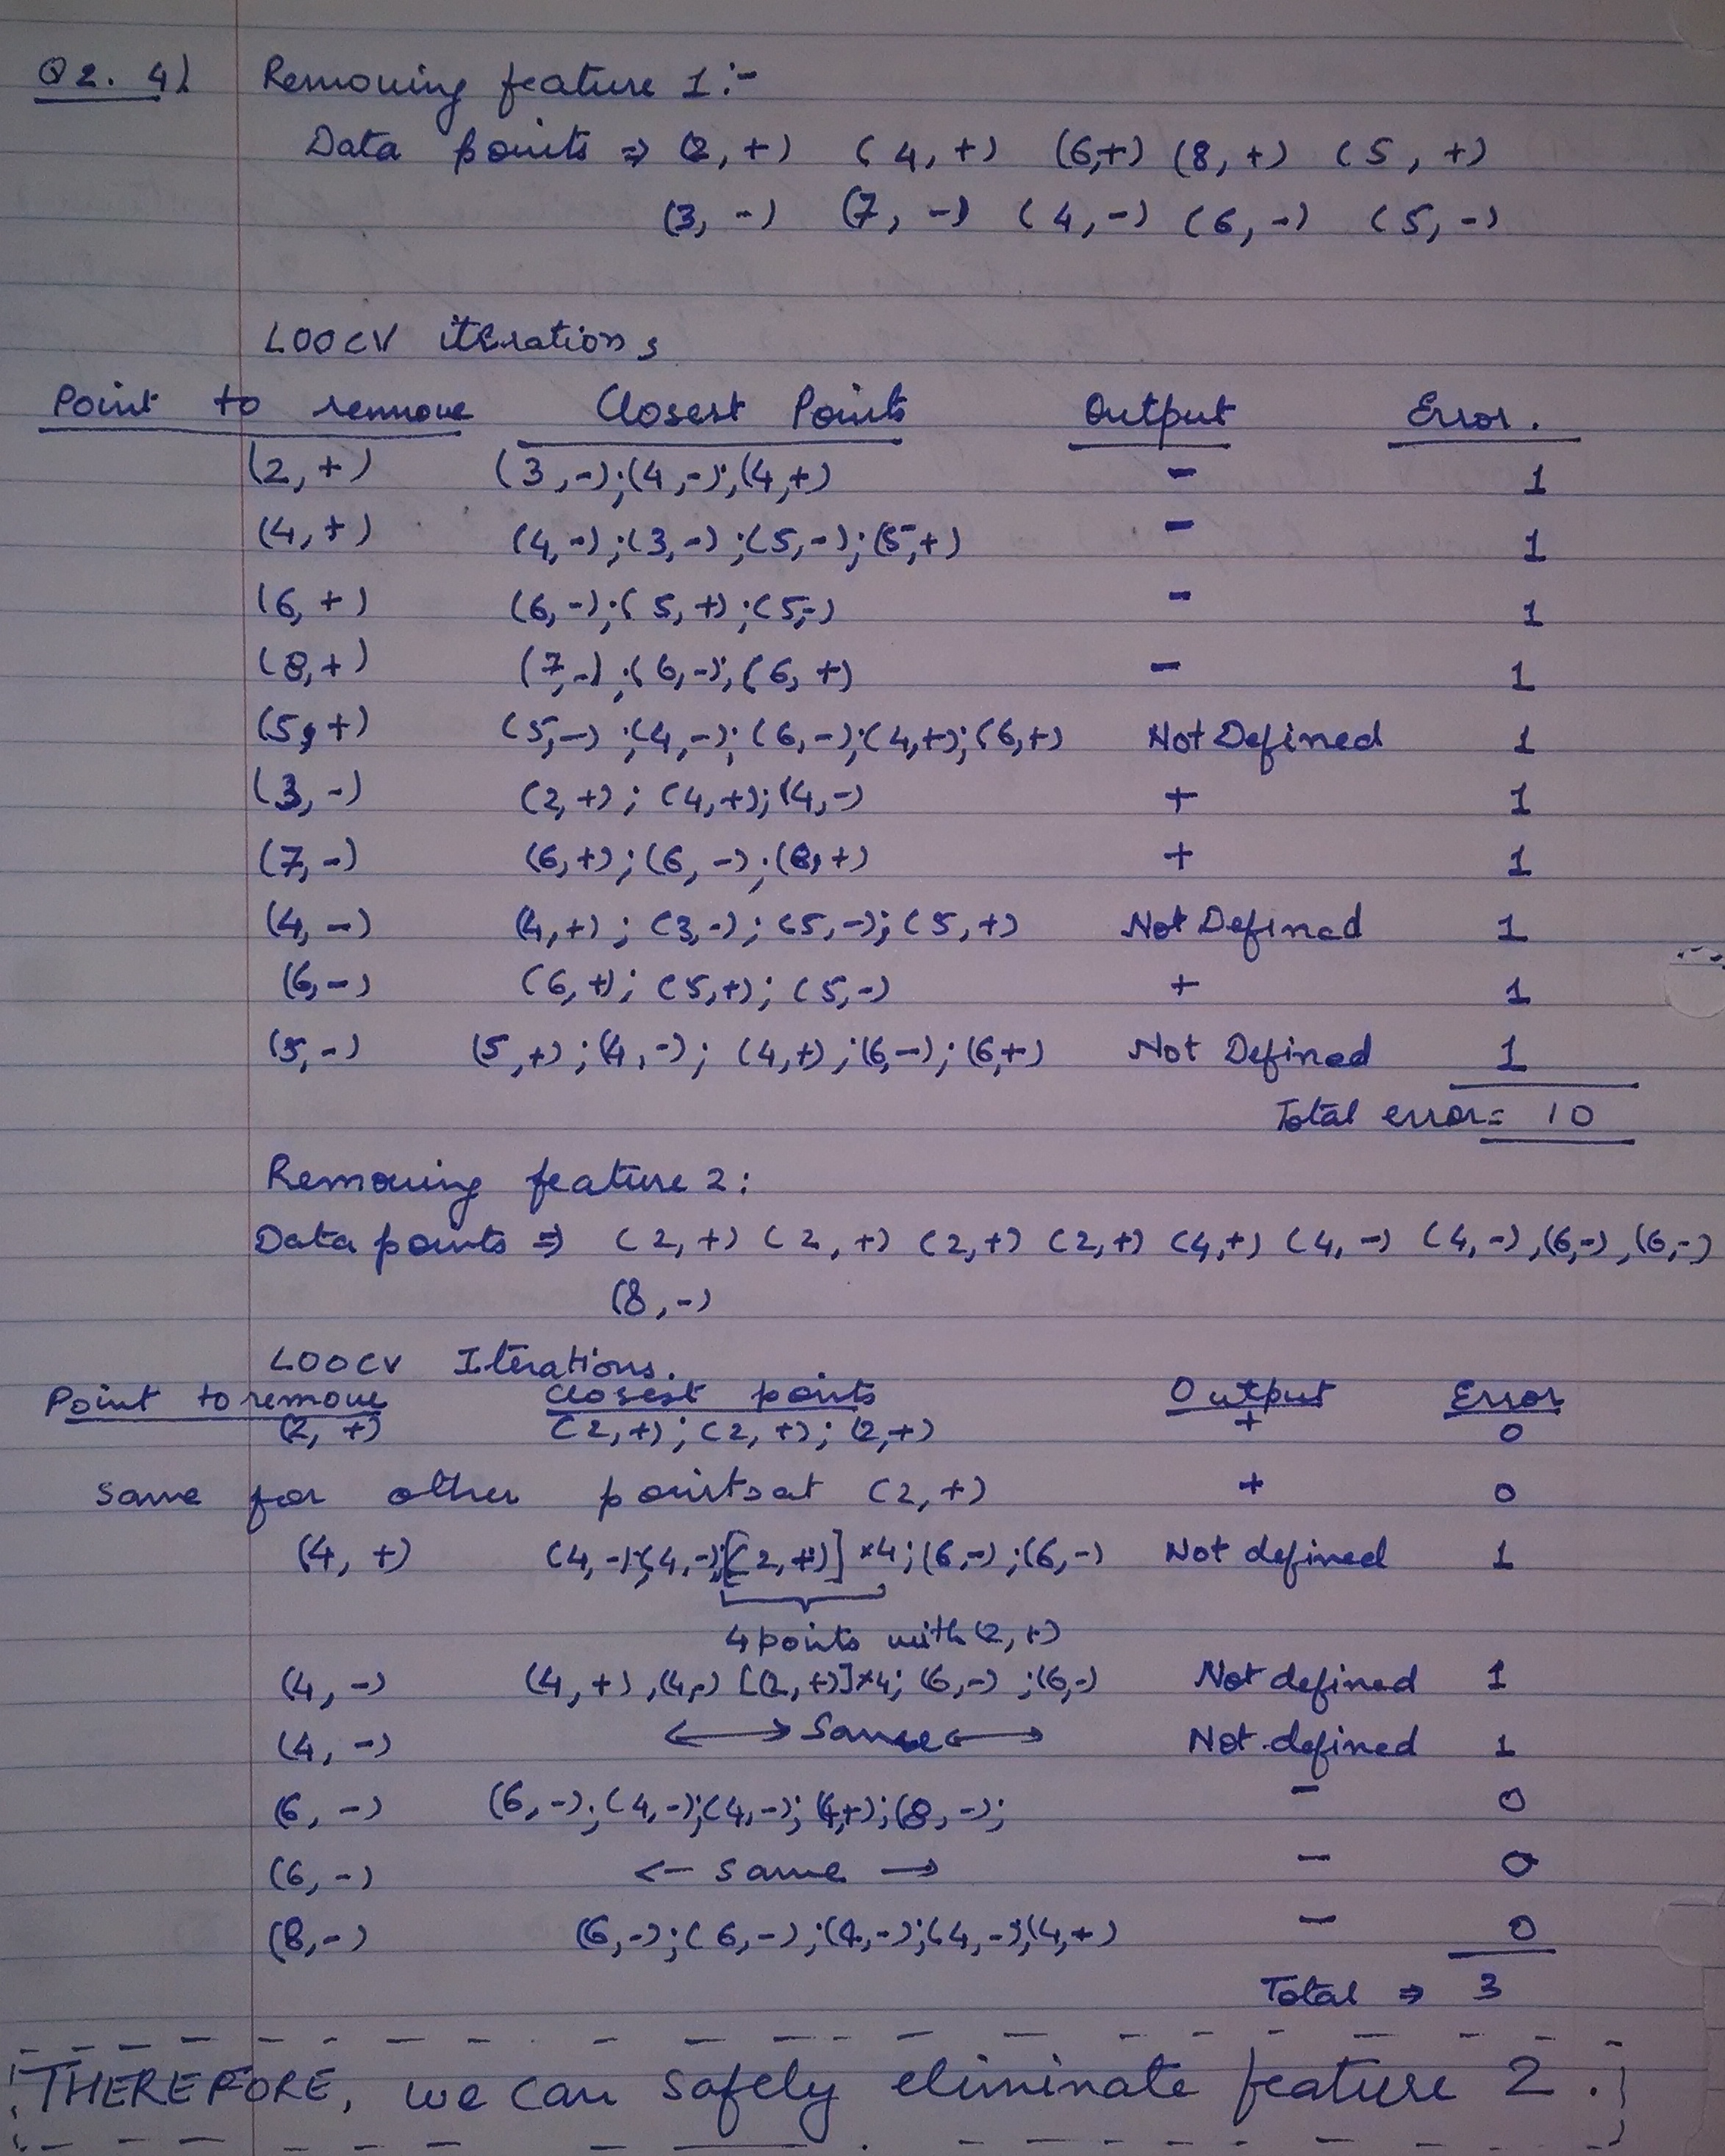 Q2. 4) Removing feature 1:-
Data points ⇒ (2, +) (4, +) (6,+) (8, +) (5, +)
(3, -) (7, -) (4, -) (6, -) (5, -)
LOOCV iterations
Point to remove Closest Points Output Error.
(2, +) (3,-);(4,-);(4,+) - 1
(4, +) (4,-);(3,-);(5,-);(5,+) - 1
(6, +) (6,-);(5,+);(5,-) - 1
(8, +) (7,-);(6,-);(6,+) - 1
(5, +) (5,-);(4,-);(6,-);(4,+);(6,+) Not Defined 1
(3, -) (2,+);(4,+);(4,-) + 1
(7, -) (6,+);(6,-);(8,+) + 1
(4, -) (4,+);(3,-);(5,-);(5,+) Not Defined 1
(6, -) (6,+);(5,+);(5,-) + 1
(5, -) (5,+);(4,-);(4,+);(6,-);(6,+) Not Defined 1
Total error = 10
Removing feature 2:
Data points ⇒ (2,+) (2,+) (2,+) (2,+) (4,+) (4,-) (4,-),(6,-),(6,-)
(8,-)
LOOCV Iterations.
Point to remove Closest points Output Error
(2, +) (2,+);(2,+);(2,+) + 0
same for other points at (2,+) + 0
(4, +) (4,-);(4,-);[(2,+)]×4;(6,-);(6,-) Not defined 1
4 points with (2,+)
(4, -) (4,+),(4,-) [(2,+)]×4; (6,-) ;(6,-) Not defined 1
(4, -) ←→ Same ←→ Not defined 1
(6, -) (6,-);(4,-);(4,-);(4,+);(8,-); - 0
(6, -) ← same → - 0
(8, -) (6,-);(6,-);(4,-);(4,-);(4,+) - 0
Total ⇒ 3
THEREFORE, we can safely eliminate feature 2.